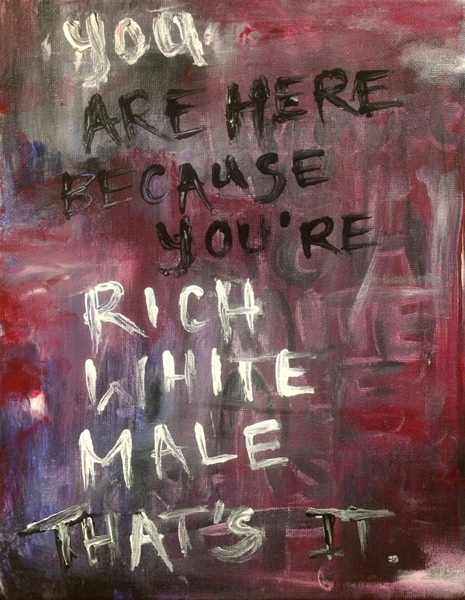 you
ARE HERE
BECAUSE
YOU'RE
RICH
WHITE
MALE
THAT'S IT.